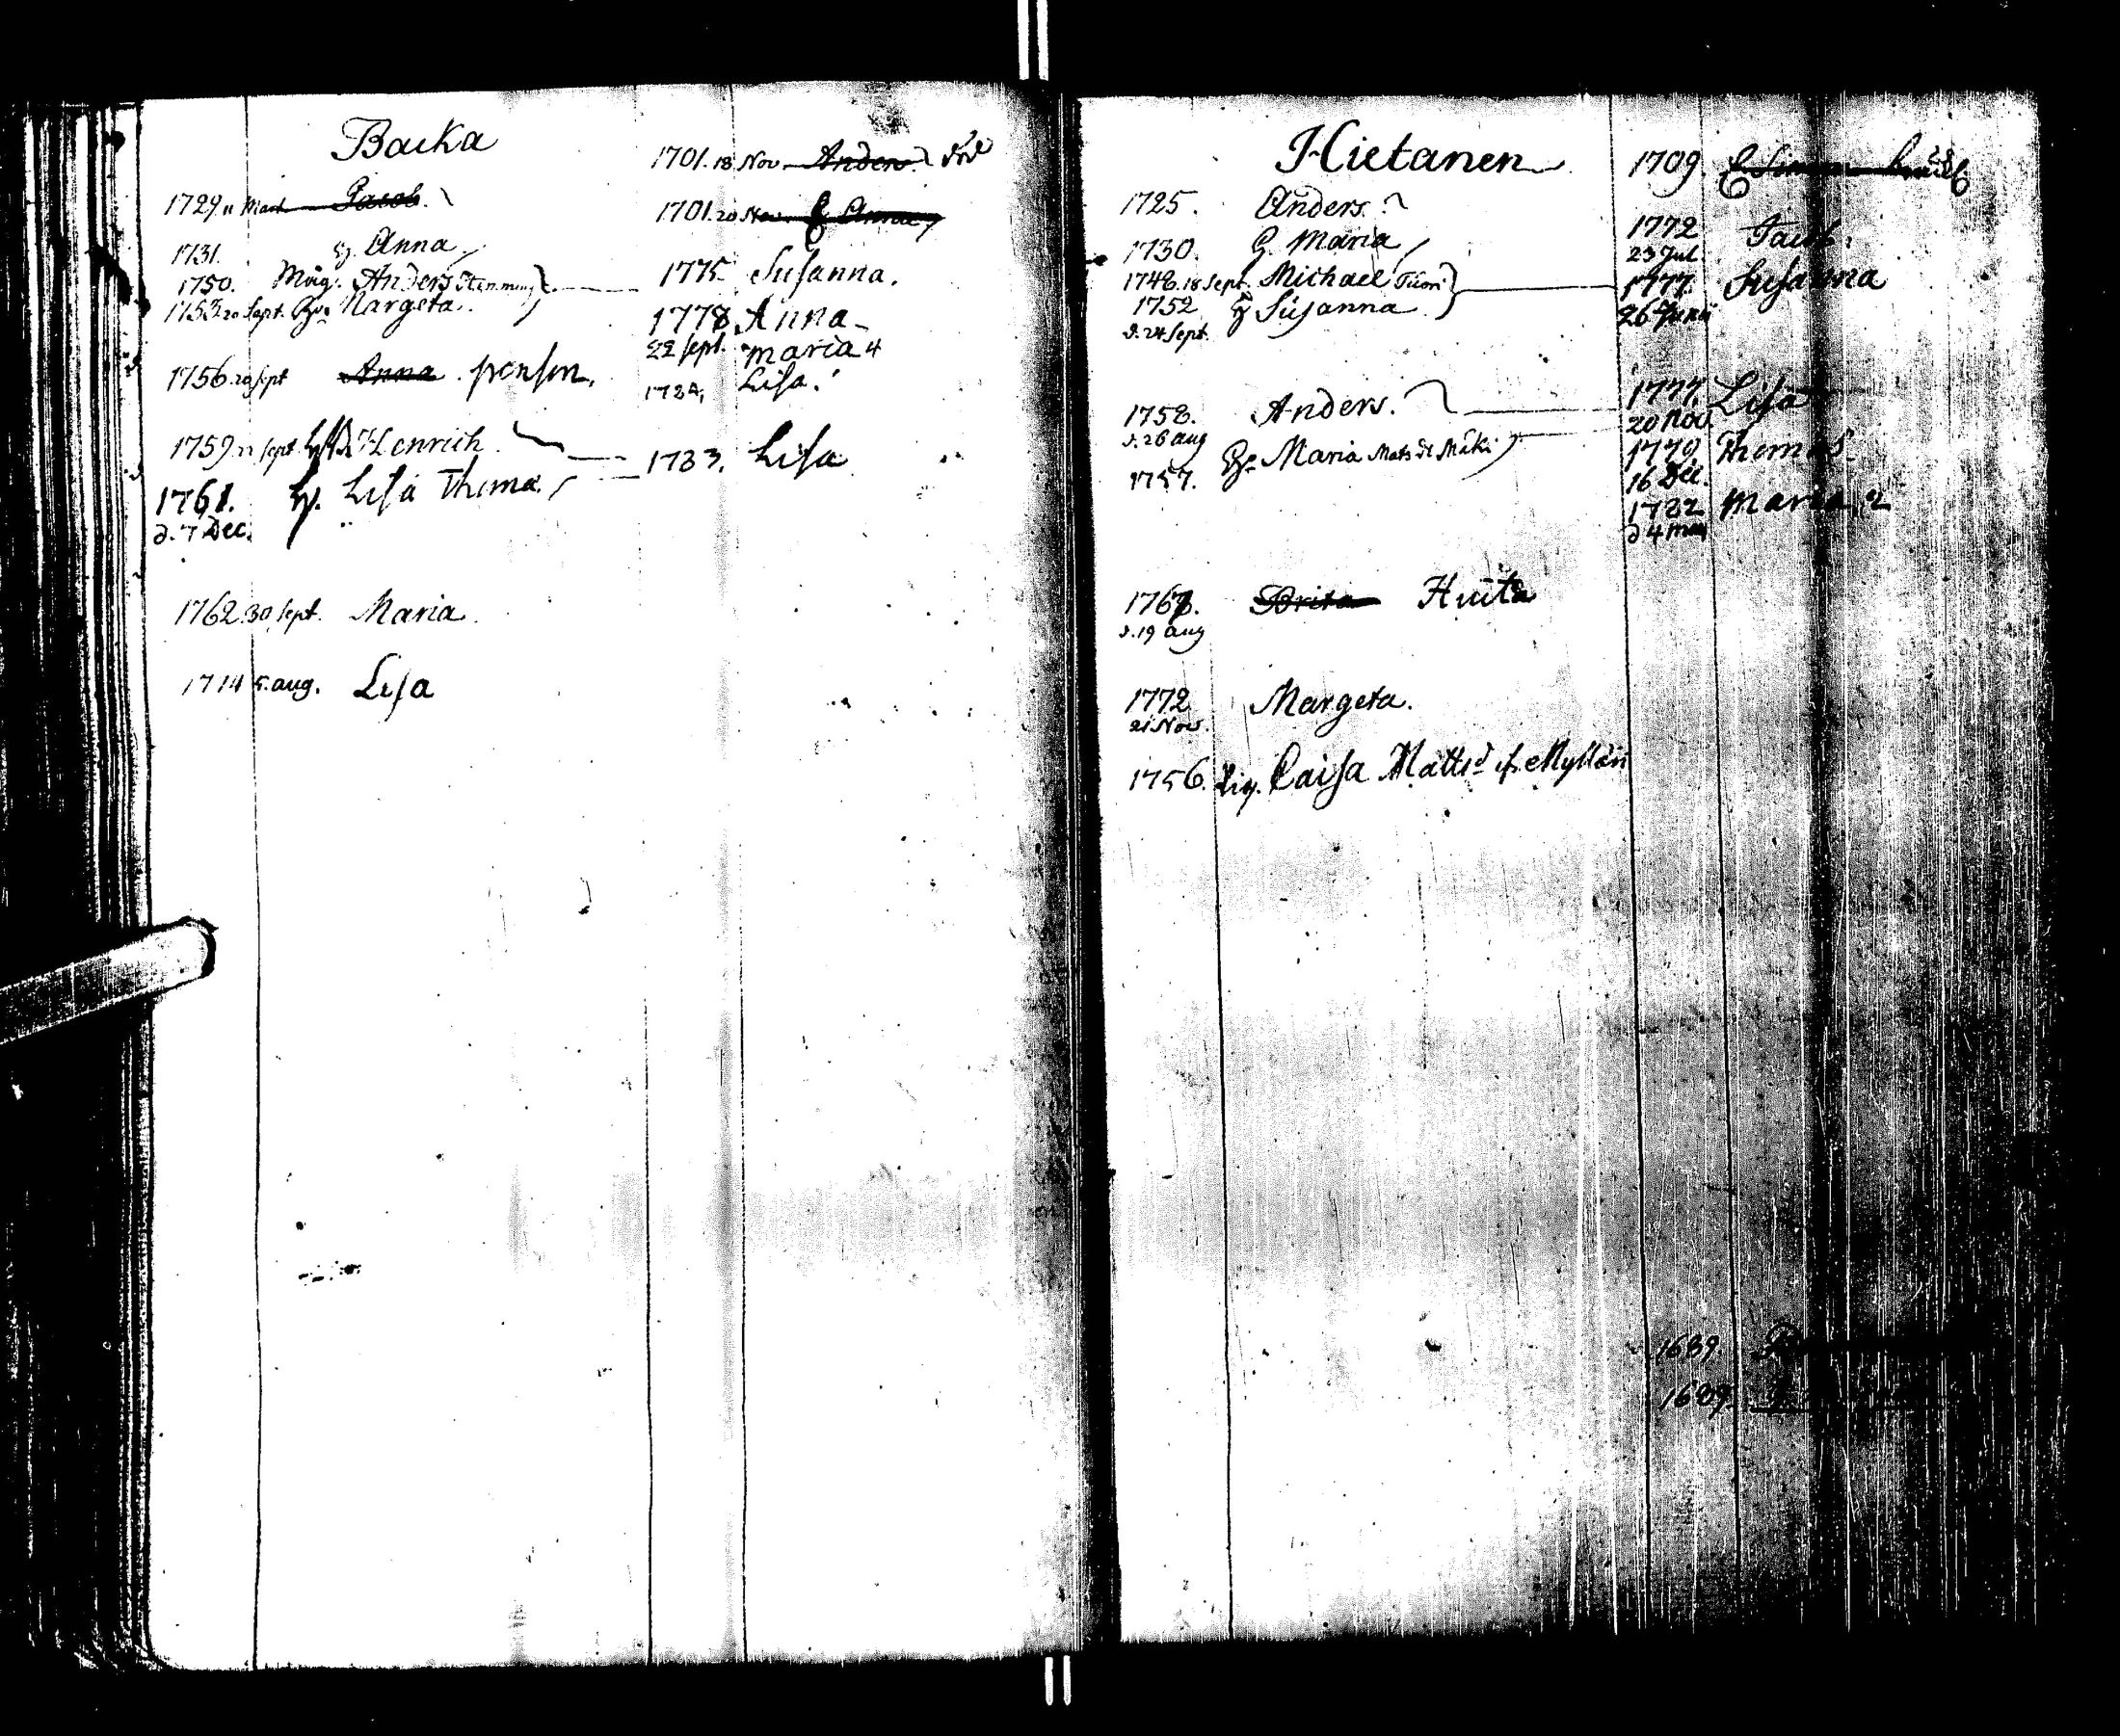 Backa
1729. 11 Mart. Jacob.
1731. H. Anna
1750. Måg. Anders Hemming
1753. 20 Sept. Margeta.
1756. 20 sept Anna
1759. sept. Henrich
1761. H. Lisa Thoma.
d. 7 Dec.
1762. 30 sept. Maria
1714 5. aug. Lisa
1701. 18 Nov Anders.
1701. 20 Nov. E Anna
1775 Susanna.
1778 Anna
22 sept. Maria 4
1784, Lisa.
1783. Lisa
Hietanen
1725. Anders.
1730. H. Maria
1748. 18 Sept. Michael
1752 H Susanna
d. 24 Sept.
1758. Anders.
d. 26 aug
1757. Maria Mats dr Mäki
1767. Brita Huita
d. 19 aug
1772 Margeta.
21 Nov.
1756. Pig. Caisa Matts dr fr. Mylläri
1709. E Simon
1772 Jacob.
23 Jul
1777. Susanna
26 Junii
1777. Lisa
20 Nov.
1779 Thomas
16 Dec.
1782 Maria 2
d 4 may
1689
1689.